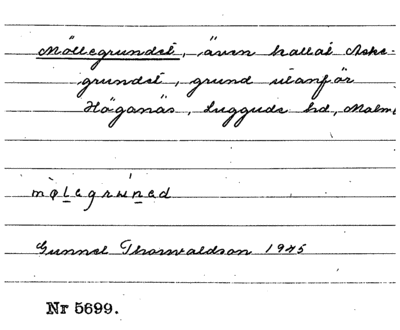 Möllegrundet, även kallat Aske-
grundet, grund utanför
Höganäs, Luggude hd, Malm
Gunnel Thorwaldson 1945
Nr 5699.